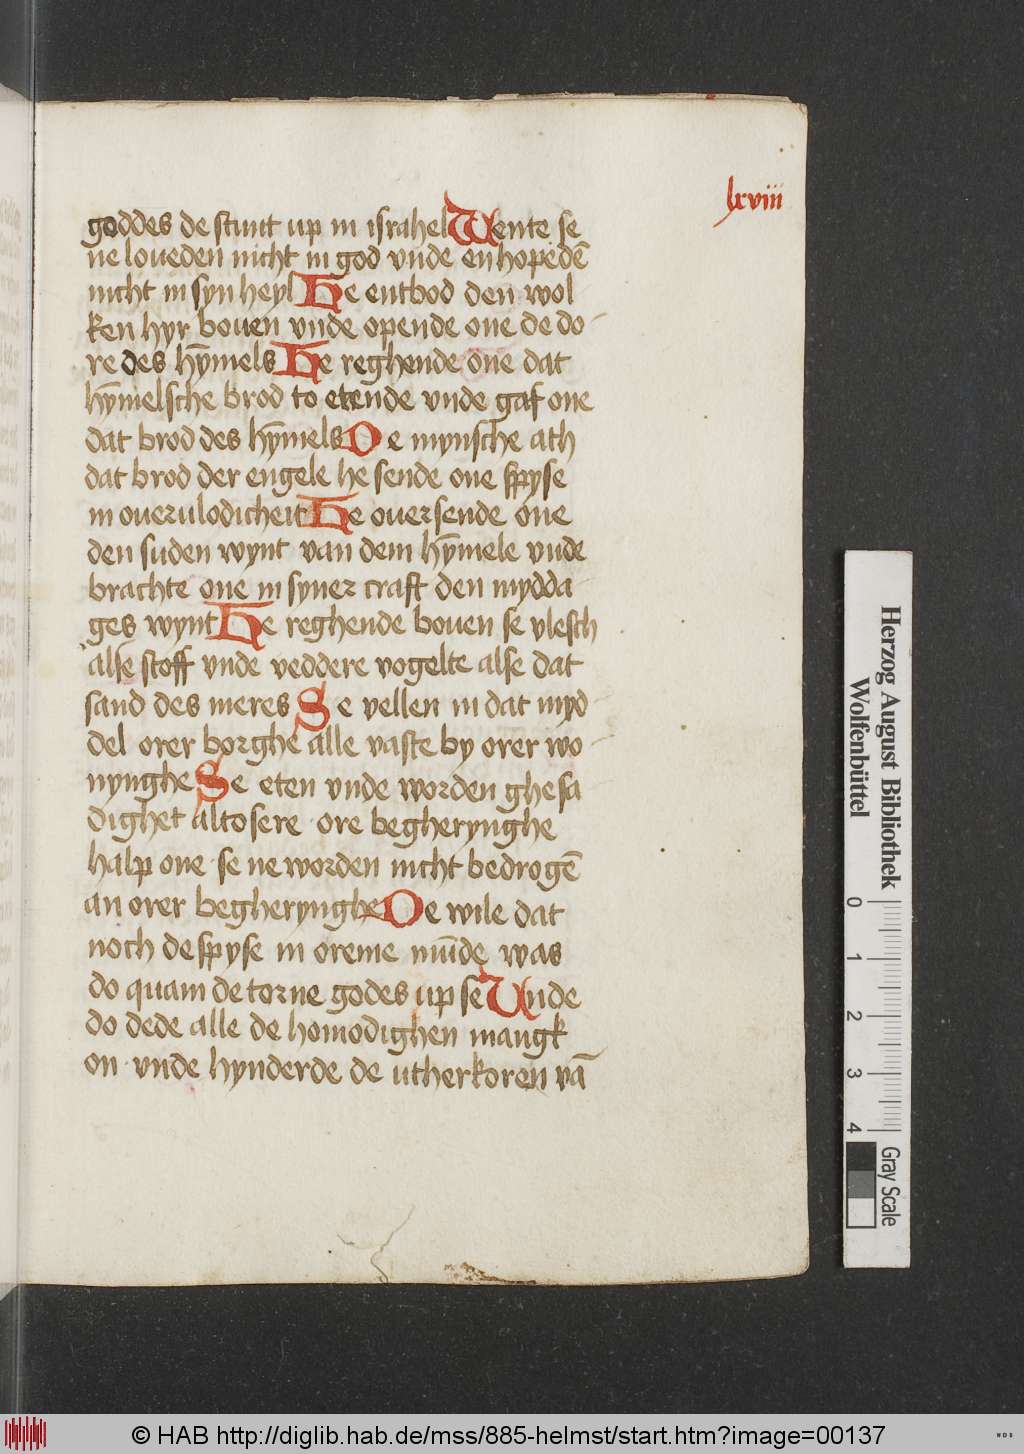 lxviii
goddes de stunt up in israhel Wente se
ne loueden nicht in god vnde en hopedē
nicht in syn heyl He entbod den wol
ken hyr bouen vnde opende one de do
re des hȳmels He reghende one dat
hȳmelsche brod to etende vnde gaf one
dat brod des hȳmels De mynsche ath
dat brod der engele he sende one spyse
in ouerulodicheit He ouersende one
den suden wynt van dem hȳmele vnde
brachte one in syner craft den mydda
ges wynt He reghende bouen se vlesch
alse stoff vnde veddere vogelte alse dat
sand des meres Se vellen in dat myd
del orer borghe alle vaste by orer wo
nynghe Se eten vnde worden ghesa
dighet altosere · ore begherynghe
halp one · se ne worden nicht bedrogē
an orer begherynghe De wile dat
noch de spyse in oreme mūde was
do quam de torne godes up se Vnde
do dede alle de homodighen mangk
on · vnde hynderde de utherkoren vā
Herzog August Bibliothek
Wolfenbüttel
0 1 2 3 4
Gray Scale
© HAB http://diglib.hab.de/mss/885-helmst/start.htm?image=00137